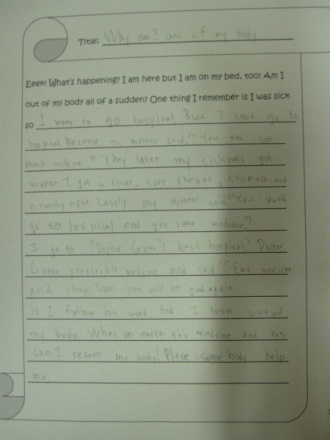 Title: Why am I out of my body
Eeek! What's happening? I am here but I am on my bed, too! Am I
out of my body all of a sudden? One thing I remember is I was sick
so I went to go hospital But I can't go to
hospital Because my mother said "You eat too
much " They later my sickness got
worse. I got a fever, sore throat, and
a runny nose. Lastly my mother said "You should
go to hospital and get some medicine."
I go to "Doctor best hospital" Doctor
medicine and said "Eat medicine
and sleep, you will be good again.
So I follow his word. And I were out of
my body. What on earth this medicine and how
can I return my body? Please some body help
me.